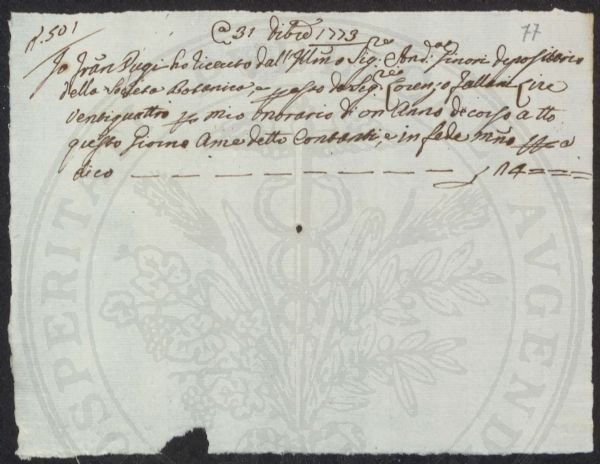 N.º 501
@ 31 Dibre 1773
77
Io Fran Pugi ho riceuto dall' Illmo Sigre Andrea Ginori depositario
della Società Botanica, e del Sigre Lorenzo Lire
Ventiquattro mio onorario di un Anno decorso a tto
questo Giorno Ame detto Contanti, e in fede mno
dico — — — — — — — — — 24 = = =
PROSPERITATI AUGENDAE